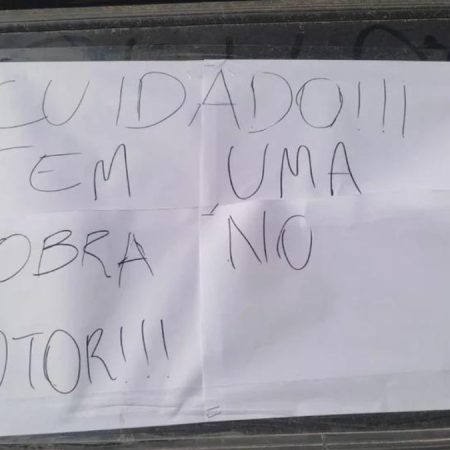 CUIDADO!!!
TEM UMA
OBRA NO
OTOR!!!